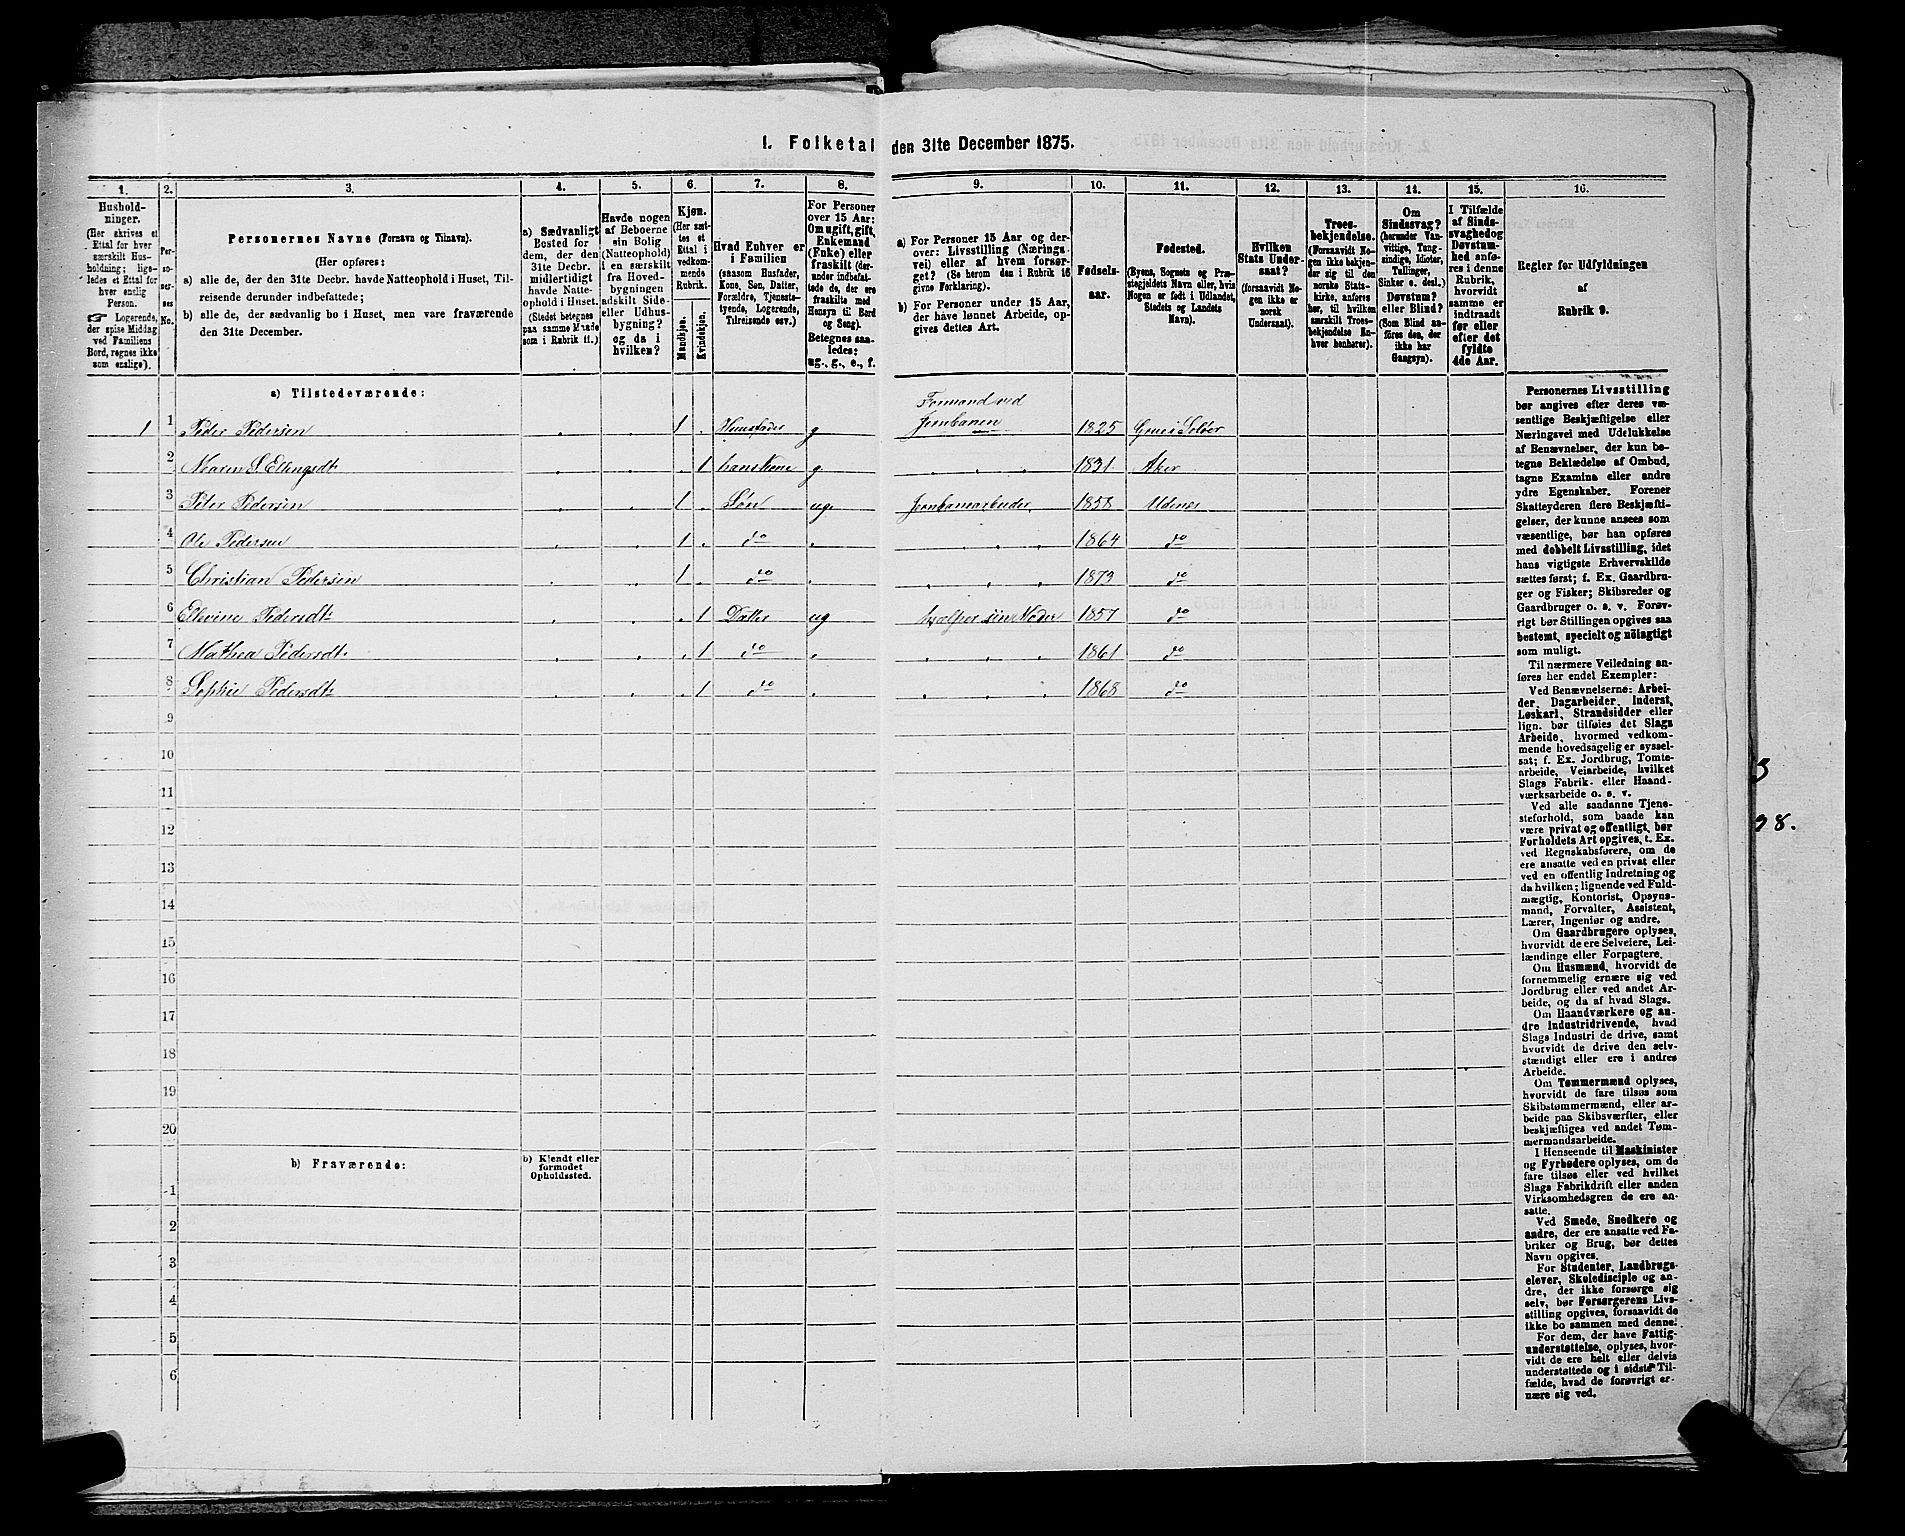 1. Folketal den 31te December 1875.
1. 2. 3. 4. 5. 6. 7. 8. 9. 10. 11. 12. 13. 14. 15. 16.
Hushold-
ninger.
(Her skrives et
Ettal for hver
særskilt Hus-
holdning; lige-
ledes et Ettal for
hver enslig
Person.
☞ Logerende,
der spise Middag
ved Familiens
Bord, regnes ikke
som enslige).
Per-
so-
ner-
nes
No.
Personernes Navne (Fornavn og Tilnavn).
(Her opføres:
a) alle de, der den 31te Decbr. havde Natteophold i Huset, Til-
reisende derunder indbefattede;
b) alle de, der sædvanlig bo i Huset, men vare fraværende
den 31te December.
a) Sædvanligt
Bosted for
dem, der den
31te Decbr.
midlertidigt
havde Natte-
ophold i Huset.
(Stedet betegnes
paa samme Maade
som i Rubrik 11.)
Havde nogen
af Beboerne
sin Bolig
(Natteophold)
i en særskilt
fra Hoved-
bygningen
adskilt Side-
eller Udhus-
bygning?
og da i
hvilken?
Kjøn.
(Her sæt-
tes et
Ettal i
vedkom-
mende
Rubrik.
Mandkjøn.
Kvindekjøn.
Hvad Enhver er
i Familien
(saasom Husfader,
Kone, Søn, Datter,
Forældre, Tjeneste-
tyende, Logerende,
Tilreisende osv.)
For Personer
over 15 Aar:
Om ugift, gift,
Enkemand
(Enke) eller
fraskilt (der-
under indbefat-
tede de, der ere
fraskilte med
Hensyn til Bord
og Seng).
Betegnes saa-
ledes:
ug., g., e., f.
a) For Personer 15 Aar og der-
over: Livsstilling (Nærings-
vei) eller af hvem forsør-
get? (Se herom den i Rubrik 16
givne Forklaring).
b) For Personer under 15 Aar,
der have lønnet Arbeide, op-
gives dettes Art.
Fødsels-
aar.
Fødested.
(Byens, Sognets og Præ-
stegjeldets Navn eller, hvis
Nogen er født i Udlandet,
Stedets og Landets
Navn).
Hvilken
Stats Under-
saat?
(forsaavidt No-
gen ikke er
norsk
Undersaat).
Troes-
bekjendelse.
(Forsaavidt No-
gen ikke bekjen-
der sig til den
norske Stats-
kirke, anføres
her, til hvilken
særskilt Troes-
bekjendelse En-
hver henhører).
Om
Sindssvag?
(herunder Van-
vittige, Tung-
sindige, Idioter,
Tullinger,
Sinker o. desl.)
Døvstum?
eller Blind?
(Som Blind an-
føres den, der
ikke har
Gangsyn).
I Tilfælde
af Sinds-
svaghed og
Døvstum-
hed anfø-
res i denne
Rubrik,
hvorvidt
samme er
indtraadt
før eller
efter det
fyldte
4de Aar.
Regler for Udfyldningen
af
Rubrik 9.
a) Tilstedeværende:
1 1 Peder Pedersen 1 Huusfader g Formand ved Jernbanen 1825 Grue i Soløer
2 Maren S. Ellingsdt. 1 hans Kone g 1831 Aker
3 Peter Pedersen 1 Søn ug. Jernbanearbeider 1858 Udenes
4 Ole Pedersen 1 do 1864 do
5 Christian Pedersen 1 do 1873 do
6 Elevine Pedersdt. 1 Datter ug hjælper sin Moder 1857 do
7 Mathea Pedersdt. 1 do 1861 do
8 Sophie Pedersdt. 1 do 1868 do
9
10
11
12
13
14
15
16
17
18
19
20
b) Fraværende:
b) Kjendt eller
formodet
Opholdssted.
1
2
3
4
5
6
Personernes Livsstilling
bør angives efter deres væ-
sentlige Beskjæftigelse eller
Næringsvei med Udelukkelse
af Benævnelser, der kun be-
tegne Beklædelse af Ombud,
tagne Examina eller andre
ydre Egenskaber. Forener
Skatteyderen flere Beskjæfti-
gelser, der kunne ansees som
væsentlige, bør han opføres
med dobbelt Livsstilling, idet
hans vigtigste Erhvervskilde
sættes først; f. Ex. Gaardbru-
ger og Fisker; Skibsreder og
Gaardbruger o. s. v. Forøv-
rigt bør Stillingen opgives saa
bestemt, specielt og nöiagtigt
som muligt.
Til nærmere Veiledning an-
føres her endel Exempler:
Ved Benævnelserne: Arbei-
der, Dagarbeider, Inderst,
Løskarl, Strandsidder eller
lign. bør tilføies det Slags
Arbeide, hvormed vedkom-
mende hovedsagelig er syssel-
sat; f. Ex. Jordbrug, Tomte-
arbeide, Veiarbeide, hvilket
Slags Fabrik- eller Haand-
værksarbeide o. s. v.
Ved alle saadanne Tjene-
steforhold, som baade kan
være privat og offentligt, bør
Forholdets Art opgives, t. Ex.
ved Regnskabsførere, om de
ere ansatte ved en privat eller
ved en offentlig Indretning og
da hvilken; lignende ved Fuld-
mægtig, Kontorist, Opsyns-
mand, Forvalter, Assistent,
Lærer, Ingeniør og andre.
Om Gaardbrugere oplyses,
hvorvidt de ere Selveiere, Lei-
lændinge eller Forpagtere.
Om Husmænd, hvorvidt de
fornemmelig ernære sig ved
Jordbrug eller ved andet Ar-
beide, og da af hvad Slags.
Om Haandværkere og an-
dre Industridrivende, hvad
Slags Industri de drive, samt
hvorvidt de drive den selv-
stændigt eller ere i andres
Arbeide.
Om Tømmermænd oplyses,
hvorvidt de fare tilsøs som
Skibstømmermænd, eller ar-
beide paa Skibsværfter, eller
beskjæftiges ved andet Tøm-
mermandsarbeide.
I Henseende til Maskinister
og Fyrbødere oplyses, om de
fare tilsøs eller ved hvilket
Slags Fabrikdrift eller anden
Virksomhedsgren de ere an-
satte.
Ved Smede, Snedkere og
andre, der ere ansatte ved Fa-
briker og Brug, bør dettes
Navn opgives.
For Studenter, Landbrugs-
elever, Skoledisciple og an-
dre, der ikke forsørge sig
selv, bør Forsørgerens Livs-
stilling opgives, forsaavidt de
ikke bo sammen med denne.
For dem, der have Fattig-
understøttelse, oplyses, hvor-
vidt de ere helt eller delvis
understøttede og i sidste Til-
fælde, hvad de forøvrigt er-
nære sig ved.